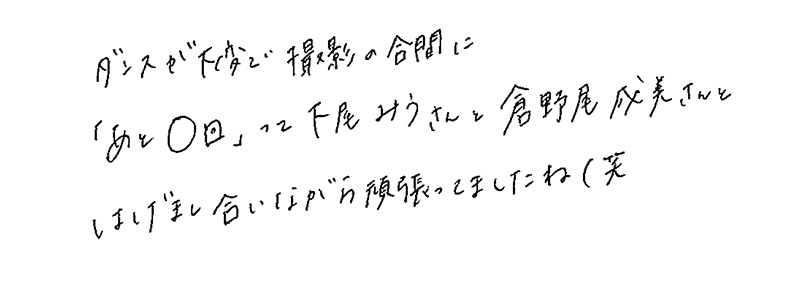 ダンスが大変で撮影の合間に
「あと〇回」って下尾みうさんと倉野尾成美さんと
はげまし合いながら頑張ってましたね(笑